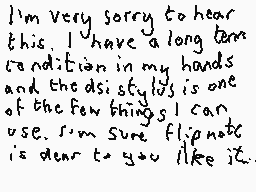 I'm very sorry to hear
this. I have a long term
condition in my hands
and the dsi stylus is one
of the few things I can
use. I'm sure flipnote
is dear to you like it..